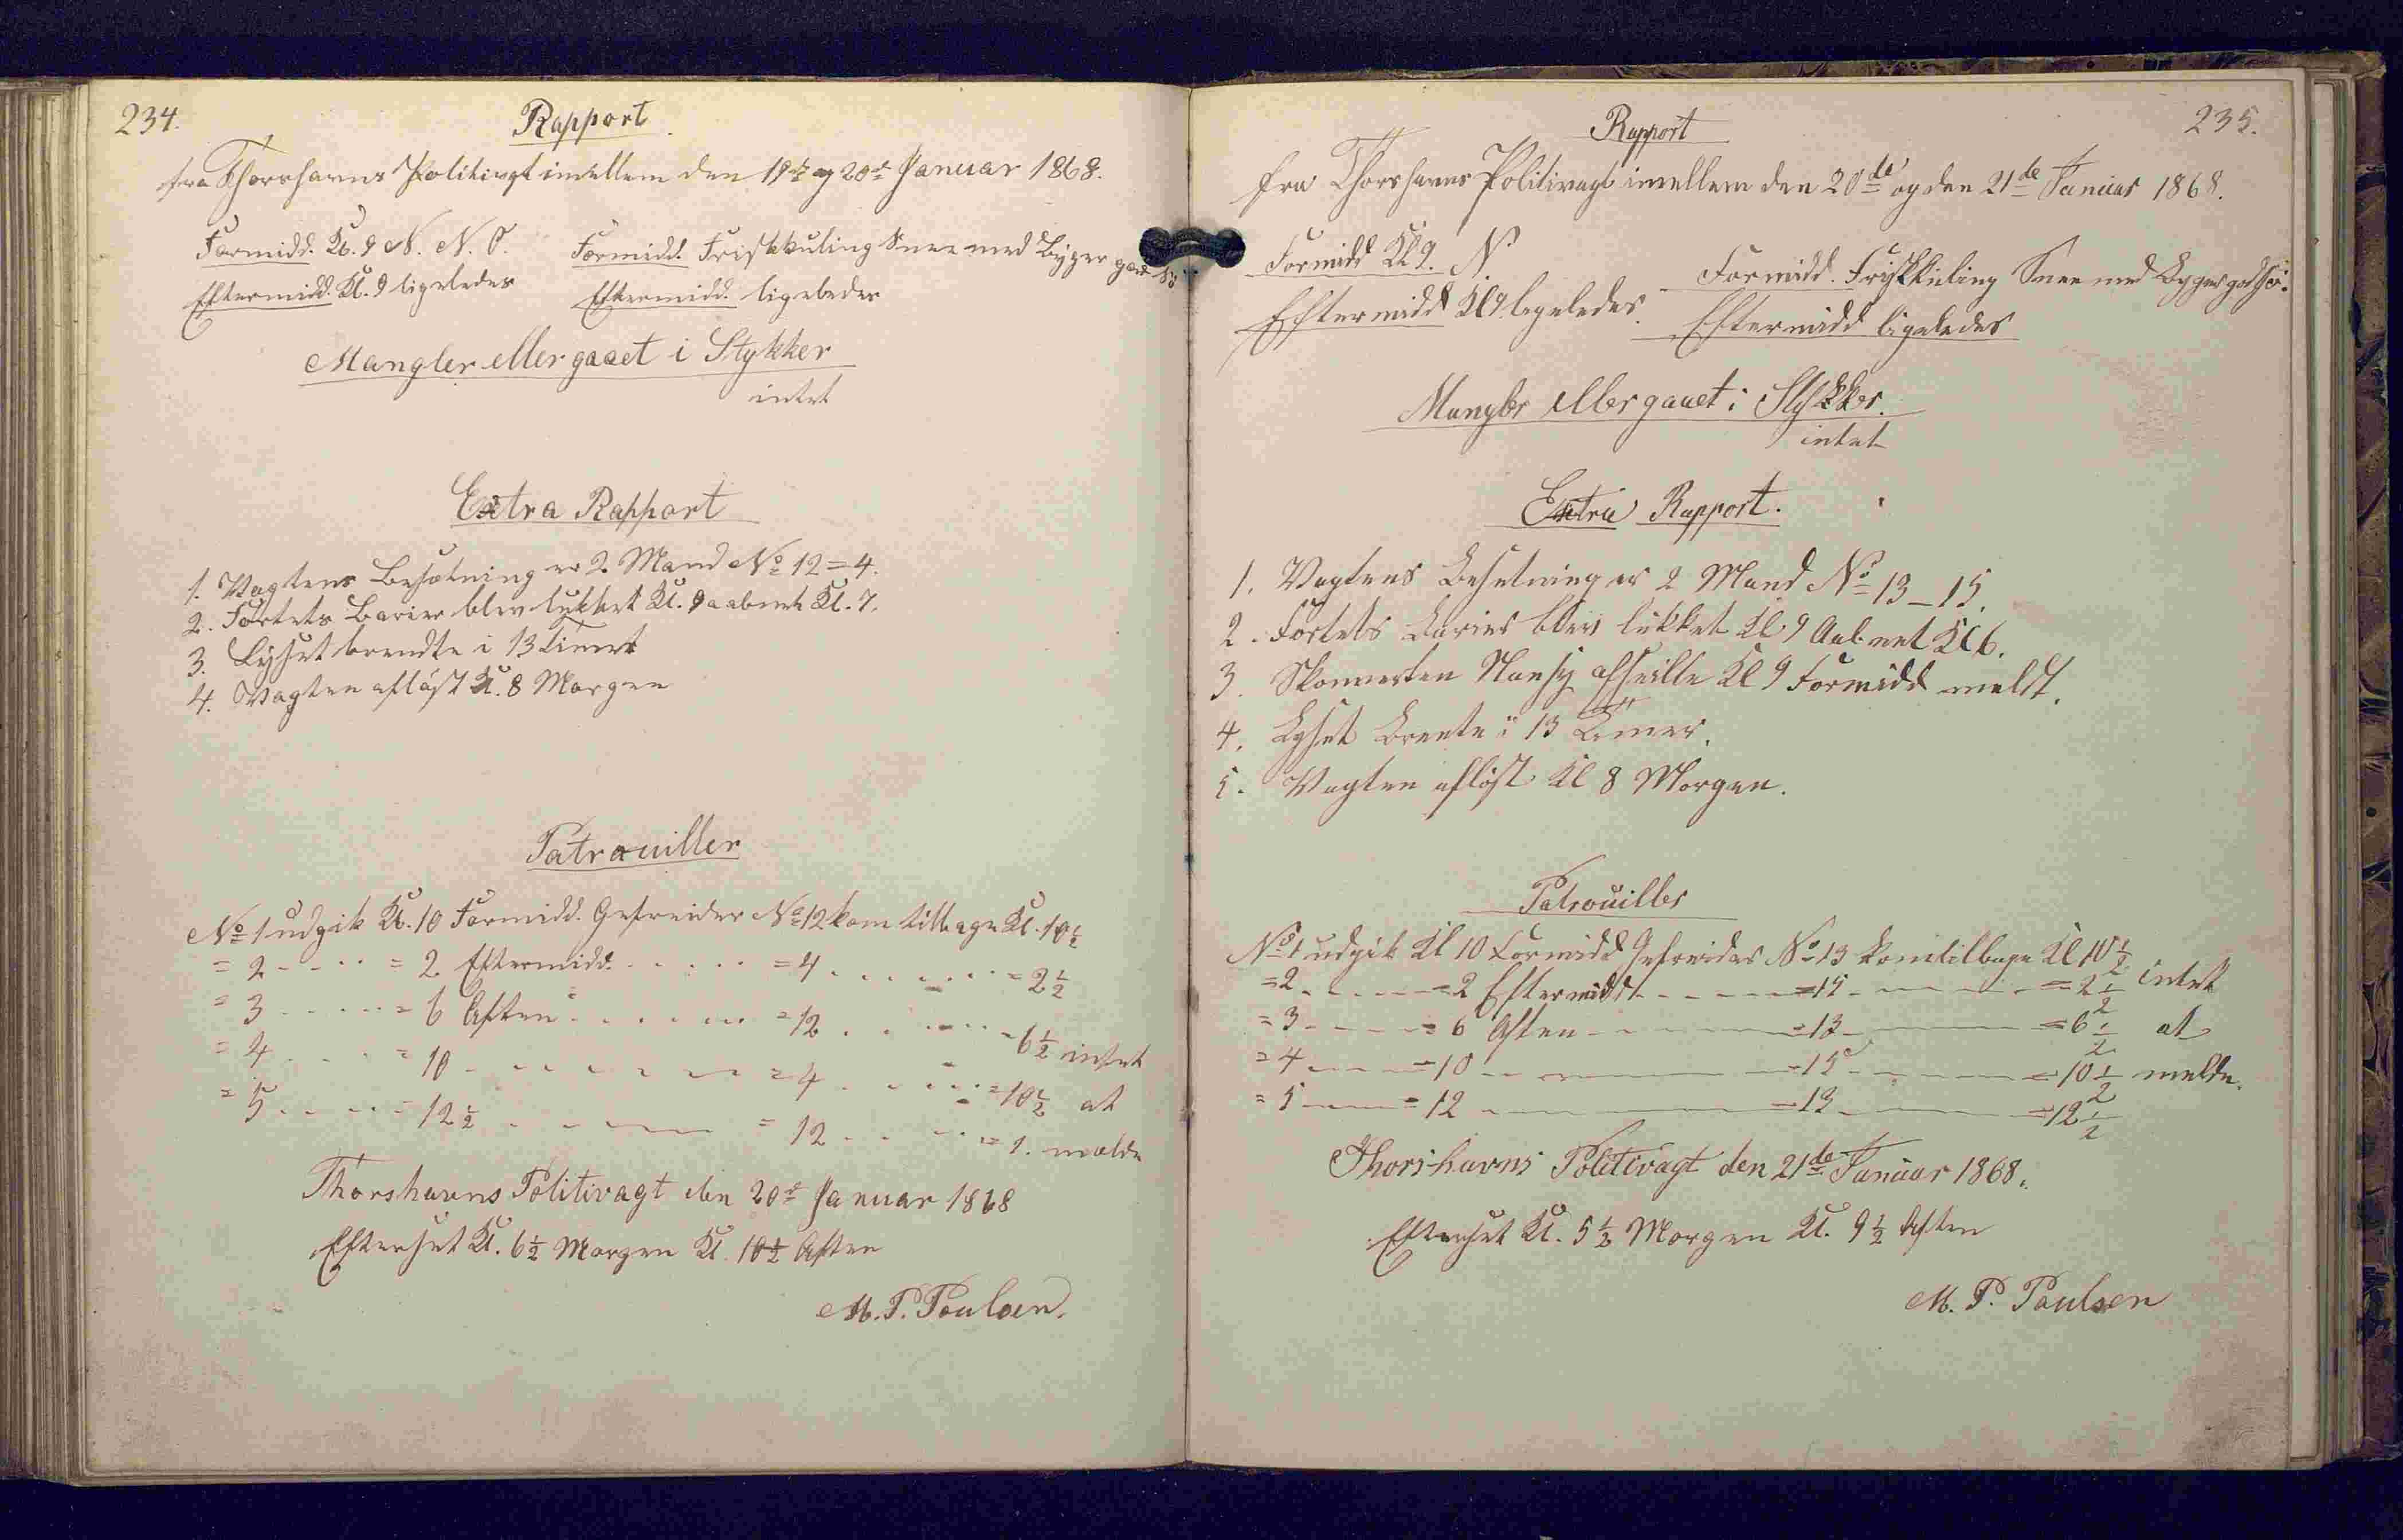 234.
Rapport
fra Thorshavns Politivagt imellem den 19de og 20de Januar 1868.
Formidd. Kl. 9 N. N. O. Formidd. Friskkuling Snee med Byger god Sö
Eftermidd. Kl. 9 ligeledes Eftermidd. ligeledes
Mangler eller gaaet i Stykker
intet
Extra Rapport
1. Vagtens Besætning er 2 Mand No 12 = 4.
2. Fortets Barier blev lukket Kl. 9 aabnet Kl. 7.
3. Lyset brendte i 13 Timer
4. Vagten aflöst Kl. 8 Morgen
Patrouiller
No 1 udgik Kl. 10 Formidd. Gefreider No 12 kom tilbage Kl. 10½
= 2 - - - - = 2 Eftermidd. - - - - = 4 - - - - = 2½
= 3 - - - - = 6 Aften - - - - = 12 - - - - = 6½ intet
= 4 - - - - = 10 - - - - = 4 - - - - = 10½ at
= 5 - - - - = 12½ - - - - = 12 - - - - = 1. melde
Thorshavns Politivagt den 20de Januar 1868
Efterset Kl. 6½ Morgen Kl. 10½ Aften
M. P. Poulsen.
235.
Rapport
fra Thorshavns Politivagt imellem den 20de og den 21de Januar 1868.
Formidd Kl 9. N. Formidd. Friskkuling Snee med Byger god Sö.
Eftermidd Kl 9. ligeledes. Eftermidd ligeledes
Mangler eller gaaet i Stykker.
intet
Extra Rapport.
1. Vagtens Besetning er 2 Mand No 13 - 15.
2. Fortets Barier blev lukket Kl 9 Aabnet Kl 6.
3. Skonnerten Nansy afseilte Kl 9 Formidd meldt.
4. Lyset Brente i 13 Timer.
5. Vagten aflöst Kl 8 Morgen.
Patrouiller
No 1 udgik Kl 10 Formidd Gefreider No 13 kom tilbage Kl 10½
= 2 - - - - = 2 Eftermidd - - - - = 15 - - - - = 2½ intet
= 3 - - - - = 6 Aften - - - - = 13 - - - - = 6½ at
= 4 - - - - = 10 - - - - = 15 - - - - = 10½ melde.
= 5 - - - - = 12 - - - - = 13 - - - - = 12½
Thorshavns Politivagt den 21de Januar 1868.
Efterset Kl. 5½ Morgen Kl. 9½ Aften
M. P. Poulsen